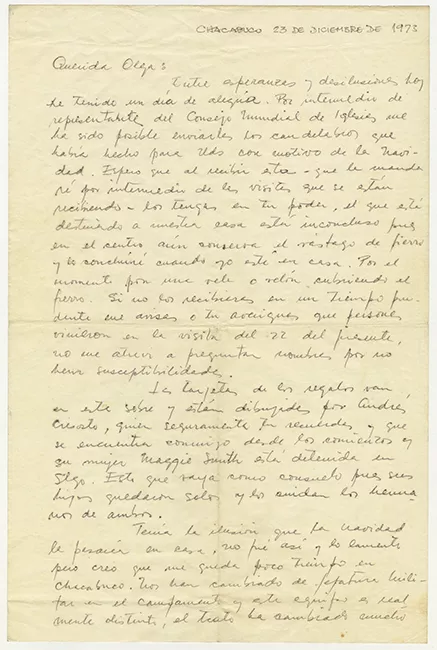 CHACABUCO 23 DE DICIEMBRE DE 1973
Querida Olga:
Entre esperanzas y desilusiones hoy
he tenido un día de alegría. Por intermedio de
representante del Consejo Mundial de Iglesias me
ha sido posible enviarles los candelabros que
había hecho para Uds con motivo de la Navi-
dad. Espero que al recibir esta - que te manda-
ré por intermedio de las visitas que se están
recibiendo - los tengas en tu poder, el que está
destinado a nuestra casa está inconcluso pues
en el centro aún conserva el vástago de fierro
y lo concluiré cuando yo esté en casa. Por el
momento pon una vela o velón cubriendo el
fierro. Si no los recibieras en un tiempo pru-
dente me avisas o tu averigues que personas
vinieron en la visita del 22 del presente,
no me atreví a preguntar nombres por no
herir susceptibilidades.
Las tarjetas de los regalos van
en este sobre y están dibujadas por Andrés
quien seguramente tu recuerdas y que
se encuentra conmigo desde los comienzos y
su mujer Maggie Smith está detenida en
Stgo. Esto que vaya como consuelo pues sus
hijos quedaron solos y los cuidan los herma-
nos de ambos.
Tenía la ilusión que la navidad
la pasaría en casa, no fué así y lo lamento
pero creo que me queda poco tiempo en
Chacabuco. Nos han cambiado de jefatura mili-
tar en el campamento y este equipo es real
mente distinto, el trato ha cambiado mucho